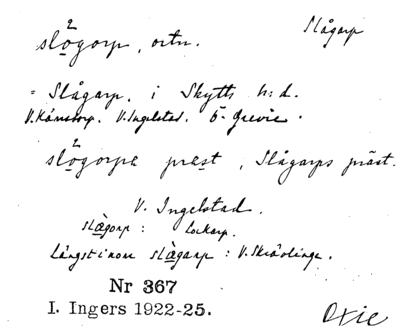 Slågarp
2
slo̱gorp, ortn.
= Slågarp, i Skytts h:d.
V. Kärrstorp. V. Ingelstad. Ö. Grevie.
2
slo̱gorps præst, Slågarps präst.
V. Ingelstad.
slæ̱gorp: Lockarp.
Längst inom slæ̱garp: V. Skrävlinge.
Nr 367
I. Ingers 1922-25.
Oxie